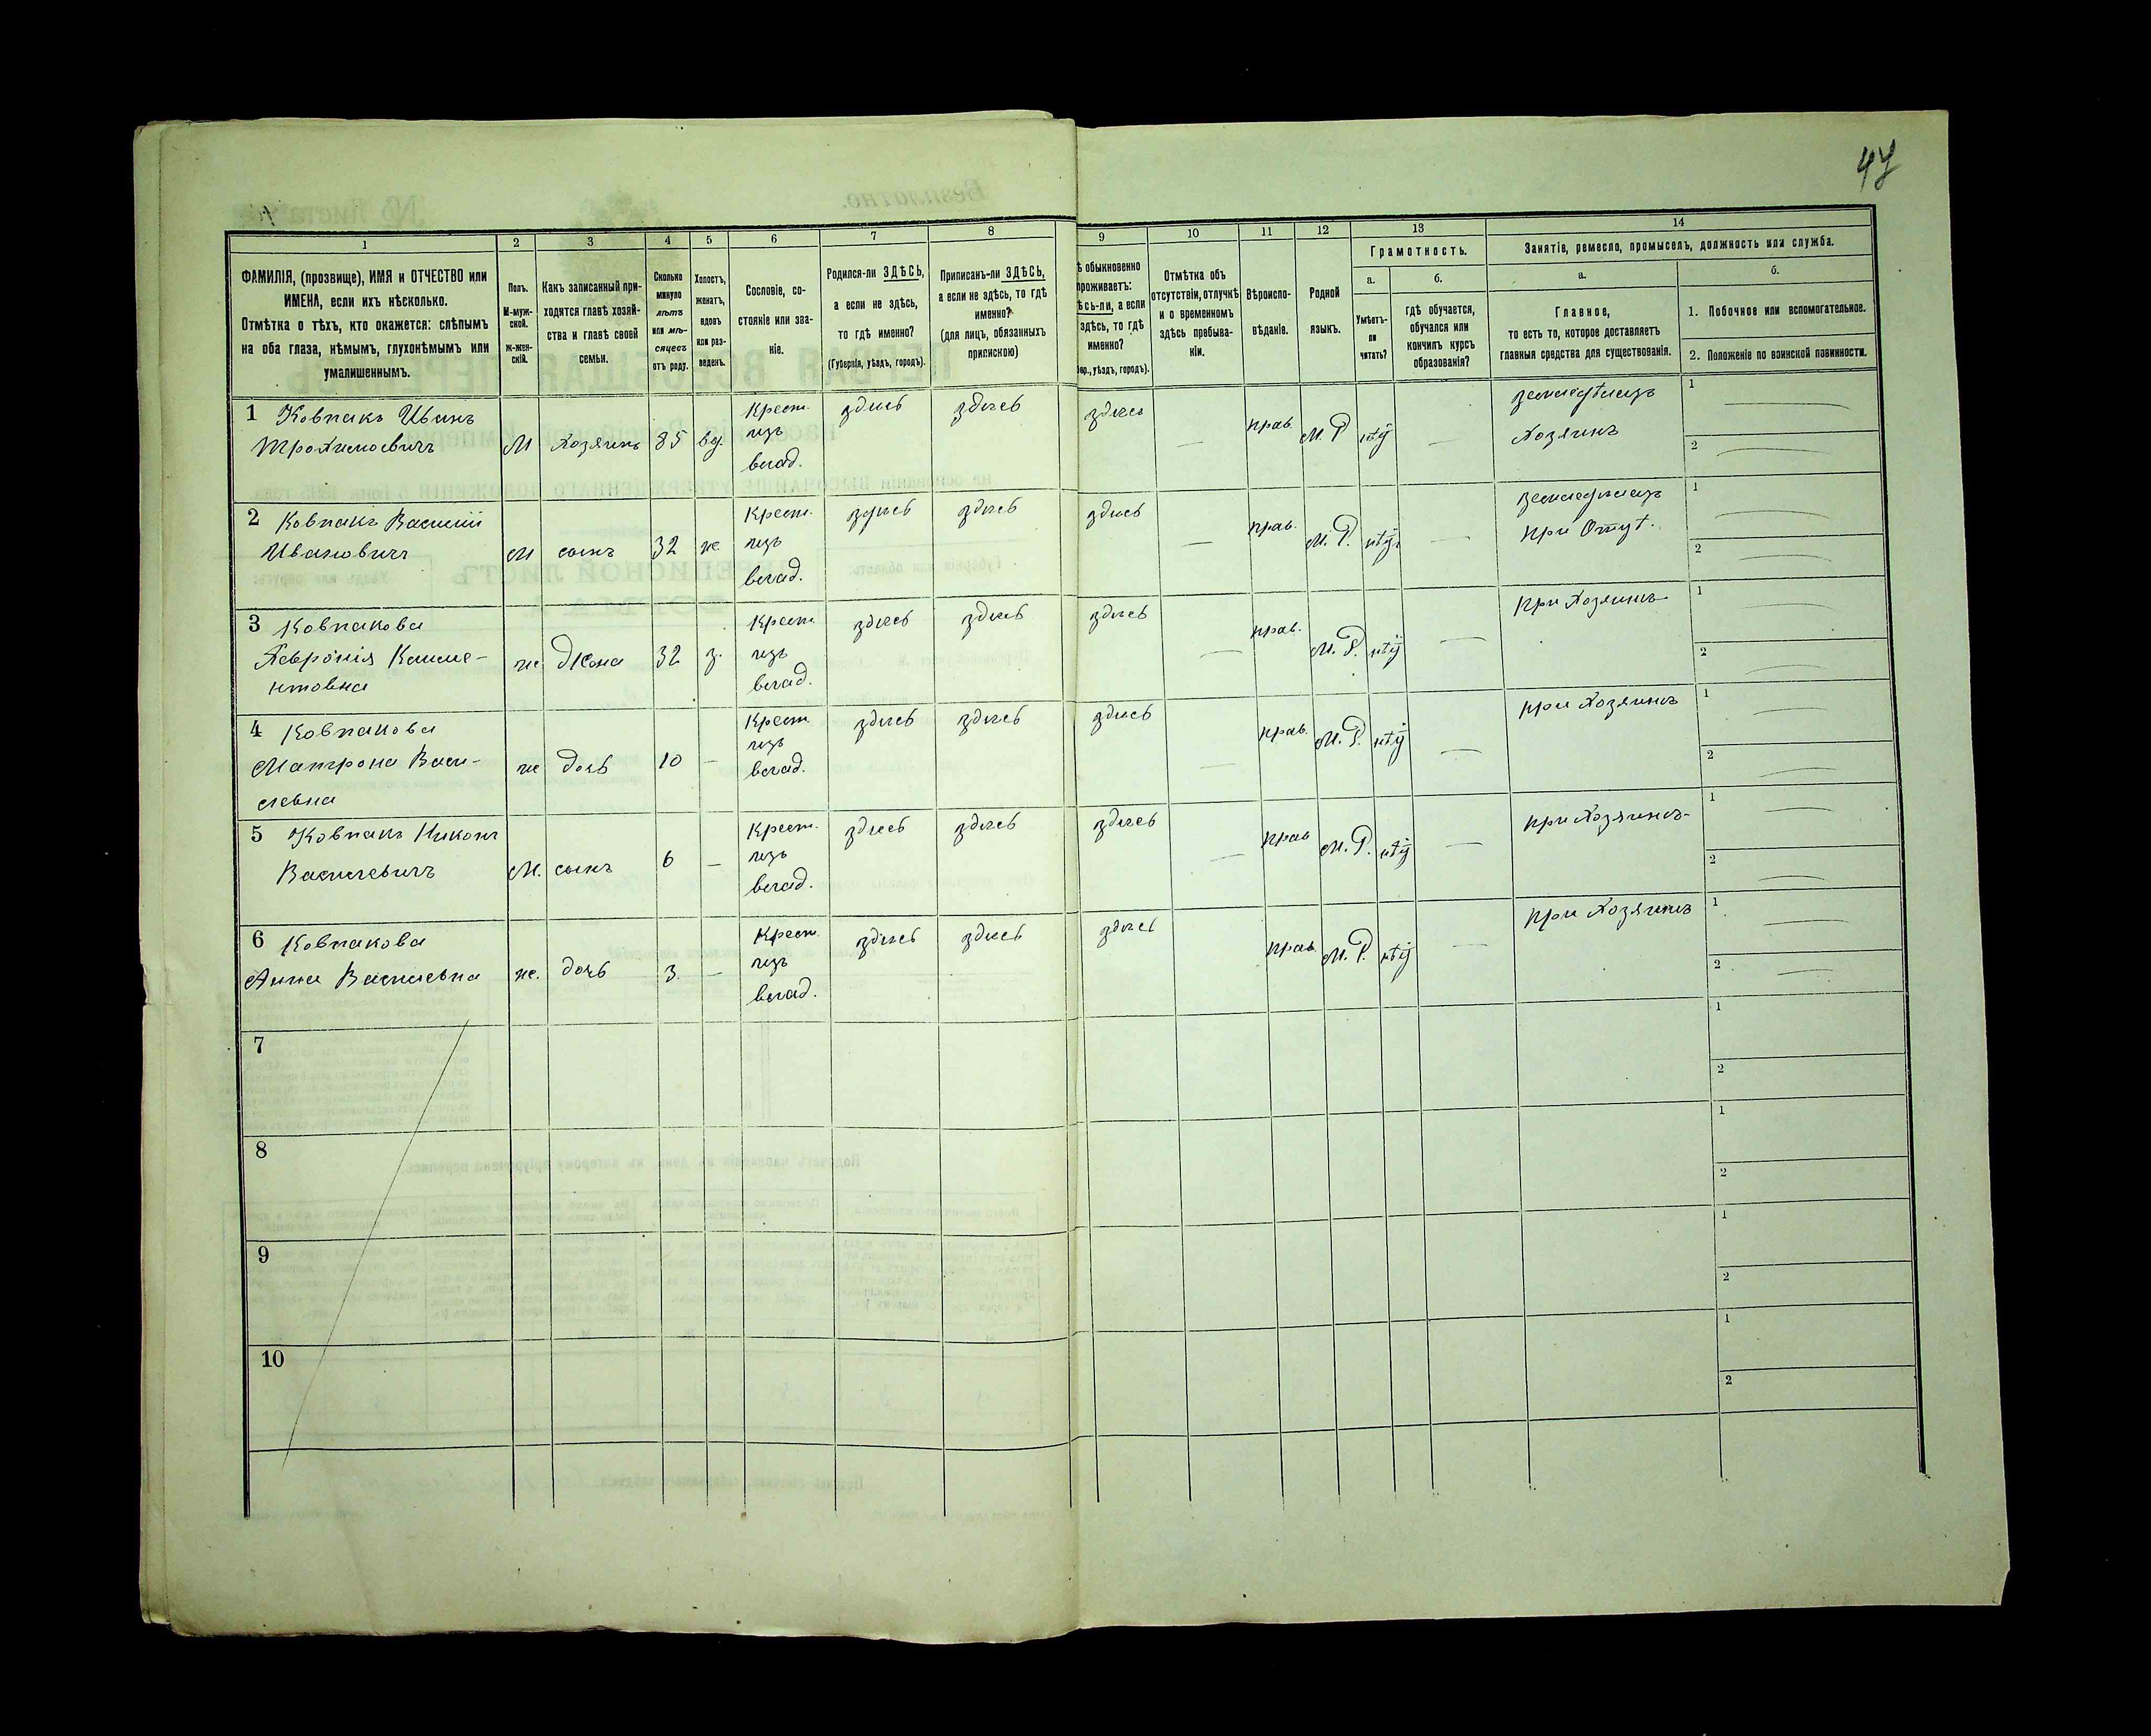 47
1
2
3
4
5
6
7
8
9
10
11
12
13
14
ФАМИЛІЯ, (прозвище), ИМЯ и ОТЧЕСТВО или
ИМЕНА, если ихъ нѣсколько.
Отмѣтка о тѣхъ, кто окажется: слѣпымъ
на оба глаза, нѣмымъ, глухонѣмымъ или
умалишеннымъ.
Полъ.
М-муж-
ской.
Ж-жен-
скій.
Какъ записанный при-
ходятся главѣ хозяй-
ства и главѣ своей
семьи.
Сколько
минуло
лѣтъ
или мѣ-
сяцевъ
отъ роду.
Холостъ,
женатъ,
вдовъ
или раз-
веденъ.
Сословіе, со-
стояніе или зва-
ніе.
Родился-ли ЗДѢСЬ,
а если не здѣсь,
то гдѣ именно?
(Губернія, уѣздъ, городъ).
Приписанъ-ли ЗДѢСЬ,
а если не здѣсь, то гдѣ
именно?
(для лицъ, обязанныхъ
припискою)
ѣ обыкновенно
проживаетъ:
ѣсь-ли, а если
здѣсь, то гдѣ
именно?
бер., уѣздъ, городъ).
Отмѣтка объ
отсутствіи, отлучкѣ
и о временномъ
здѣсь пребыва-
ніи.
Вѣроиспо-
вѣданіе.
Родной
языкъ.
Грамотность.
а.
б.
Умѣетъ-
ли
читать?
гдѣ обучается,
обучался или
кончилъ курсъ
образованія?
Занятіе, ремесло, промыселъ, должность или служба.
а.
б.
Главное,
то есть то, которое доставляетъ
главныя средства для существованія.
1. Побочное или вспомогательное.
2. Положеніе по воинской повинности.
1 Ковпакъ Иванъ
Трохимовичъ
М
хозяинъ
85
вд.
Крест.
изъ
влад.
здись
здись
здись
—
прав.
М. Р
нѣтъ
—
земледѣлецъ
хозяинъ
1
2
2 Ковпакъ Василій
Ивановичъ
М
сынъ
32
ж.
Крест.
изъ
влад.
здись
здись
здись
—
прав.
М. Р.
нѣтъ
—
земледѣлецъ
при Отцѣ.
1
2
3 Ковпакова
Февронія Климе-
нтовна
ж
Жена
32
з.
Крест
изъ
влад.
здись
здись
здись
—
прав.
М. Р.
нѣтъ
—
при хозяинѣ
1
2
4 Ковпакова
Матрона Васи-
левна
ж
дочь
10
—
Крест
изъ
влад.
здись
здись
здись
—
прав.
М. Р.
нѣтъ
—
при хозяинѣ
1
2
5 Ковпакъ Никонъ
Василевичъ
М.
сынъ
6
—
Крест.
изъ
влад.
здись
здись
здись
—
прав
М. Р.
нѣтъ
—
при хозяинѣ
1
2
6 Ковпакова
Анна Василевна
ж.
дочь
3.
—
Крест.
изъ
влад.
здись
здись
здись
прав
М. Р.
нѣтъ
—
при хозяинѣ
1
2
7
1
2
8
1
2
9
1
2
10
1
2